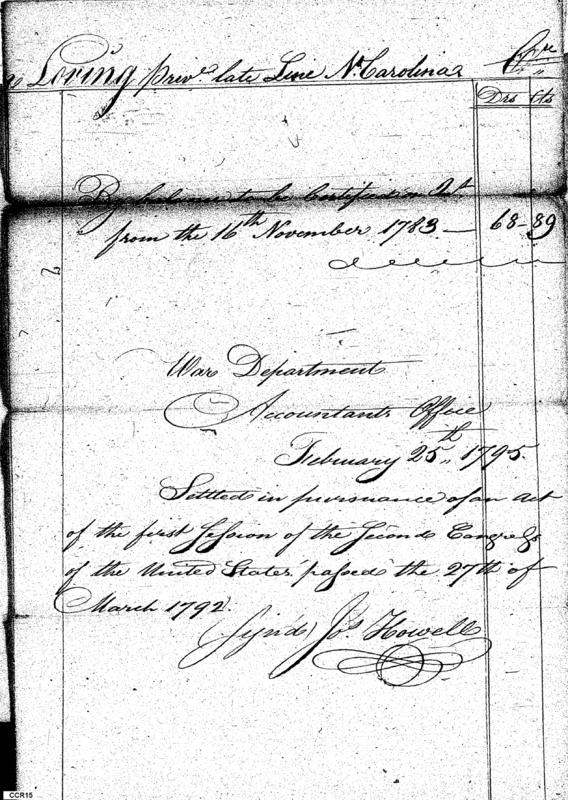 Loving priv.s late Line N. Carolina
Drs Cts
By balance to be Certified on Int.
from the 16th November 1783 — 68-89
War Department
Accountants Office
February 25th 1795.
Settled in pursuance of an act
of the first Session of the Second Congress
of the United States passed the 27th of
March 1792.
Signd Jos Howell
CCR15